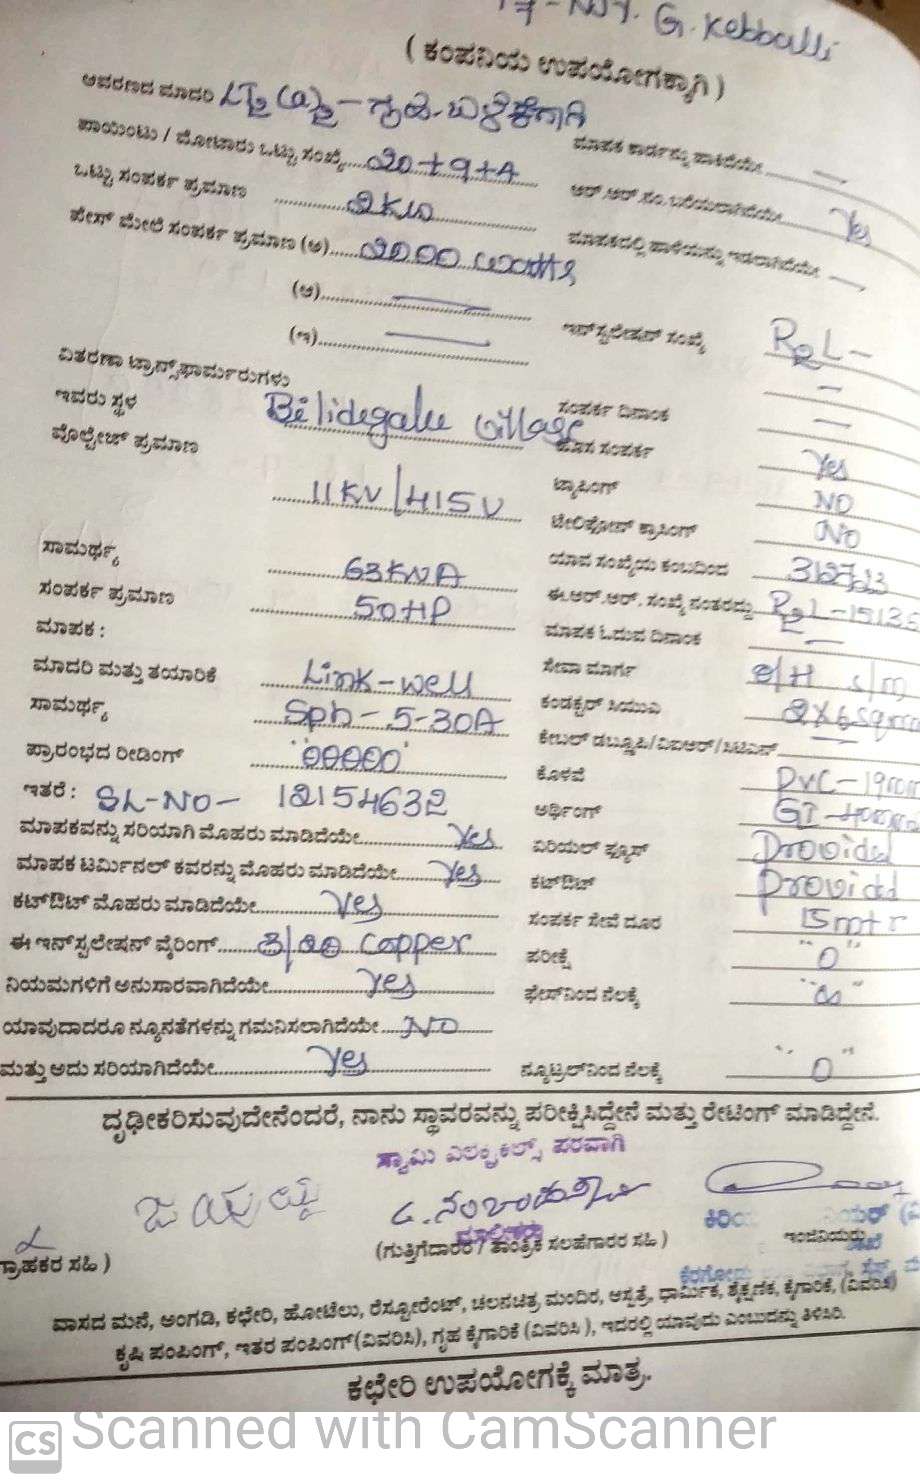 G. Kebballi
( ಕಂಪನಿಯ ಉಪಯೋಗಕ್ಕಾಗಿ )
ಆವರಣದ ಮಾದರಿ
ಪಾಯಿಂಟು / ಮೋಟಾರು ಒಟ್ಟು ಸಂಖ್ಯೆ 20+9+4
ಮಾಪಕ ಕಾರ್ಡನ್ನು ಹಾಕಿದೆಯೇ —
ಒಟ್ಟು ಸಂಪರ್ಕ ಪ್ರಮಾಣ 2KW
ಆರ್.ಆರ್.ಸಂ. ಬರೆಯಲಾಗಿದೆಯೇ Yes
ಫೇಸ್ ಮೇಲೆ ಸಂಪರ್ಕ ಪ್ರಮಾಣ (ಅ) 2000 watts
ಮಾಪಕದಲ್ಲಿ ಹಾಳೆಯನ್ನು ಇಡಲಾಗಿದೆಯೇ —
(ಆ) —
(ಇ) —
ಇನ್‌ಸ್ಟಲೇಷನ್ ಸಂಖ್ಯೆ RRL-
ವಿತರಣಾ ಟ್ರಾನ್ಸ್‌ಫಾರ್ಮರುಗಳು
ಇವರು ಸ್ಥಳ Bilidegalu village
ಸಂಪರ್ಕ ದಿನಾಂಕ —
ವೊಲ್ಟೇಜ್ ಪ್ರಮಾಣ 11KV/415V
ಹೊಸ ಸಂಪರ್ಕ Yes
ಟ್ಯಾಪಿಂಗ್ NO
ಟೆಲಿಫೋನ್ ಕ್ರಾಸಿಂಗ್ NO
ಸಾಮರ್ಥ್ಯ 63KVA
ಯಾವ ಸಂಖ್ಯೆಯ ಕಂಬದಿಂದ
ಸಂಪರ್ಕ ಪ್ರಮಾಣ 50HP
ಈ.ಆರ್.ಆರ್. ಸಂಖ್ಯೆ ನಂತರದ್ದು
ಮಾಪಕ :
ಮಾಪಕ ಓದುವ ದಿನಾಂಕ —
ಮಾದರಿ ಮತ್ತು ತಯಾರಿಕೆ Link-well
ಸೇವಾ ಮಾರ್ಗ O/H
ಸಾಮರ್ಥ್ಯ Sph-5-30A
ಕಂಡಕ್ಟರ್ ಸಿಯುಎ
ಪ್ರಾರಂಭದ ರೀಡಿಂಗ್ "00000"
ಕೇಬಲ್ ಡಬ್ಲ್ಯೂಪಿ/ವಿಐಆರ್/ಸಿಟಿಎಸ್ —
ಇತರೆ : SL-NO- 12154632
ಕೊಳವೆ PVC-19mm
ಮಾಪಕವನ್ನು ಸರಿಯಾಗಿ ಮೊಹರು ಮಾಡಿದೆಯೇ Yes
ಅರ್ಥಿಂಗ್ GI
ಮಾಪಕ ಟರ್ಮಿನಲ್ ಕವರನ್ನು ಮೊಹರು ಮಾಡಿದೆಯೇ Yes
ಏರಿಯಲ್ ಫ್ಯೂಸ್ Provided
ಕಟ್‌ಔಟ್ ಮೊಹರು ಮಾಡಿದೆಯೇ Yes
ಕಟ್‌ಔಟ್ Provided
ಈ ಇನ್‌ಸ್ಟಲೇಷನ್ ವೈರಿಂಗ್ 3/20 Copper
ಸಂಪರ್ಕ ಸೇವೆ ದೂರ 15mtr
ಪರೀಕ್ಷೆ "0"
ನಿಯಮಗಳಿಗೆ ಅನುಸಾರವಾಗಿದೆಯೇ Yes
ಫೇಸ್‌ನಿಂದ ನೆಲಕ್ಕೆ "∞"
ಯಾವುದಾದರೂ ನ್ಯೂನತೆಗಳನ್ನು ಗಮನಿಸಲಾಗಿದೆಯೇ NO
ಮತ್ತು ಅದು ಸರಿಯಾಗಿದೆಯೇ Yes
ನ್ಯೂಟ್ರಲ್‌ನಿಂದ ನೆಲಕ್ಕೆ "0"
ದೃಢೀಕರಿಸುವುದೇನೆಂದರೆ, ನಾನು ಸ್ಥಾವರವನ್ನು ಪರೀಕ್ಷಿಸಿದ್ದೇನೆ ಮತ್ತು ರೇಟಿಂಗ್ ಮಾಡಿದ್ದೇನೆ.
ಸ್ವಾಮಿ ಎಲೆಕ್ಟ್ರಿಕಲ್ಸ್ ಪರವಾಗಿ
ಜಯಮ್ಮ
ಮಾಲೀಕರು
ಗ್ರಾಹಕರ ಸಹಿ )
(ಗುತ್ತಿಗೆದಾರರ / ತಾಂತ್ರಿಕ ಸಲಹೆಗಾರರ ಸಹಿ )
ಇಂಜಿನಿಯರು
ವಾಸದ ಮನೆ, ಅಂಗಡಿ, ಕಛೇರಿ, ಹೋಟೆಲು, ರೆಸ್ಟೋರೆಂಟ್, ಚಲನಚಿತ್ರ ಮಂದಿರ, ಆಸ್ಪತ್ರೆ, ಧಾರ್ಮಿಕ, ಶೈಕ್ಷಣಿಕ, ಕೈಗಾರಿಕೆ, (ವಿವರಿಸಿ)
ಕೃಷಿ ಪಂಪಿಂಗ್, ಇತರ ಪಂಪಿಂಗ್(ವಿವರಿಸಿ), ಗೃಹ ಕೈಗಾರಿಕೆ (ವಿವರಿಸಿ ), ಇದರಲ್ಲಿ ಯಾವುದು ಎಂಬುದನ್ನು ತಿಳಿಸಿರಿ.
ಕಛೇರಿ ಉಪಯೋಗಕ್ಕೆ ಮಾತ್ರ.
CS Scanned with CamScanner